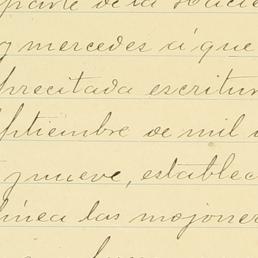 parte de la Hacie
y mercedes á que
precitada escritur
eptiembre de mil
y nueve, establec
línea las mojoner